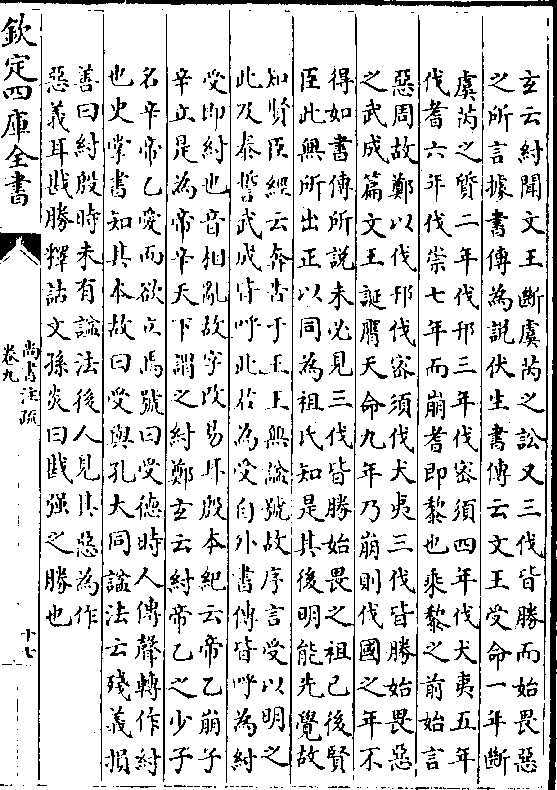 玄云紂聞文王斷虞芮之訟又三伐皆勝而始畏惡
之所言據書傳為說伏生書傳云文王受命一年斷
虞芮之質二年伐邘三年伐密須四年伐犬夷五年
伐耆六年伐崇七年而崩耆即黎也乘黎之前始言
惡周故鄭以伐邘伐密須伐犬夷三伐皆勝始畏惡
之武成篇文王誕膺天命九年乃崩則伐國之年不
得如書傳所說未必見三伐皆勝始畏之祖己後賢
臣此無所出正以同為祖氏知是其後明能先覺故
知賢臣經云奔告于王王無諡號故序言受以明之
此及泰誓武成皆呼此君為受自外書傳皆呼為紂
受即紂也音相亂故字改易耳殷本紀云帝乙崩子
辛立是為帝辛天下謂之紂鄭玄云紂帝乙之少子
名辛帝乙愛而欲立焉號曰受德時人傳聲轉作紂
也史掌書知其本故曰受與孔大同諡法云殘義損
善曰紂殷時未有諡法後人見其惡為作
惡義耳戡勝釋詁文孫炎曰戡强之勝也
欽定四庫全書
尚書注疏
卷九
十七